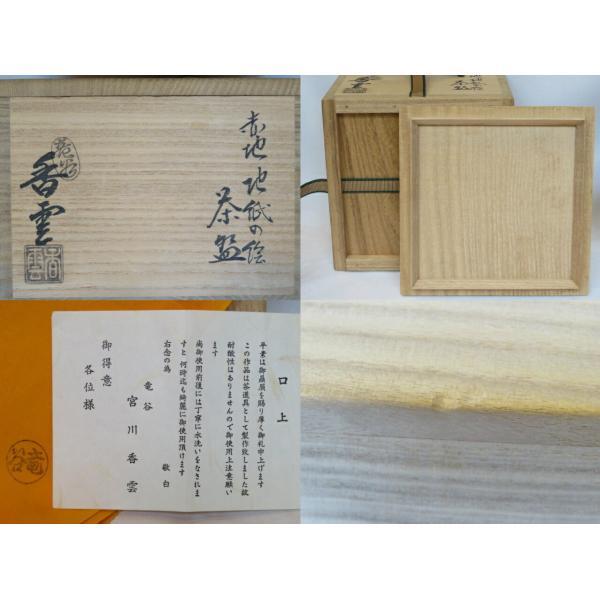 赤地地紙の絵
茶盌
香雲
香雲
口上
平素は御贔屓を賜り厚く御礼申上げます
この作品は茶道具として製作致しました故
耐酸性はありませんので御使用上注意願い
ます
尚御使用前後には丁寧に水洗いをなされま
すと何時迄も綺麗に御使用頂けます
右念の為
敬白
竜谷
宮川香雲
御得意
各位様